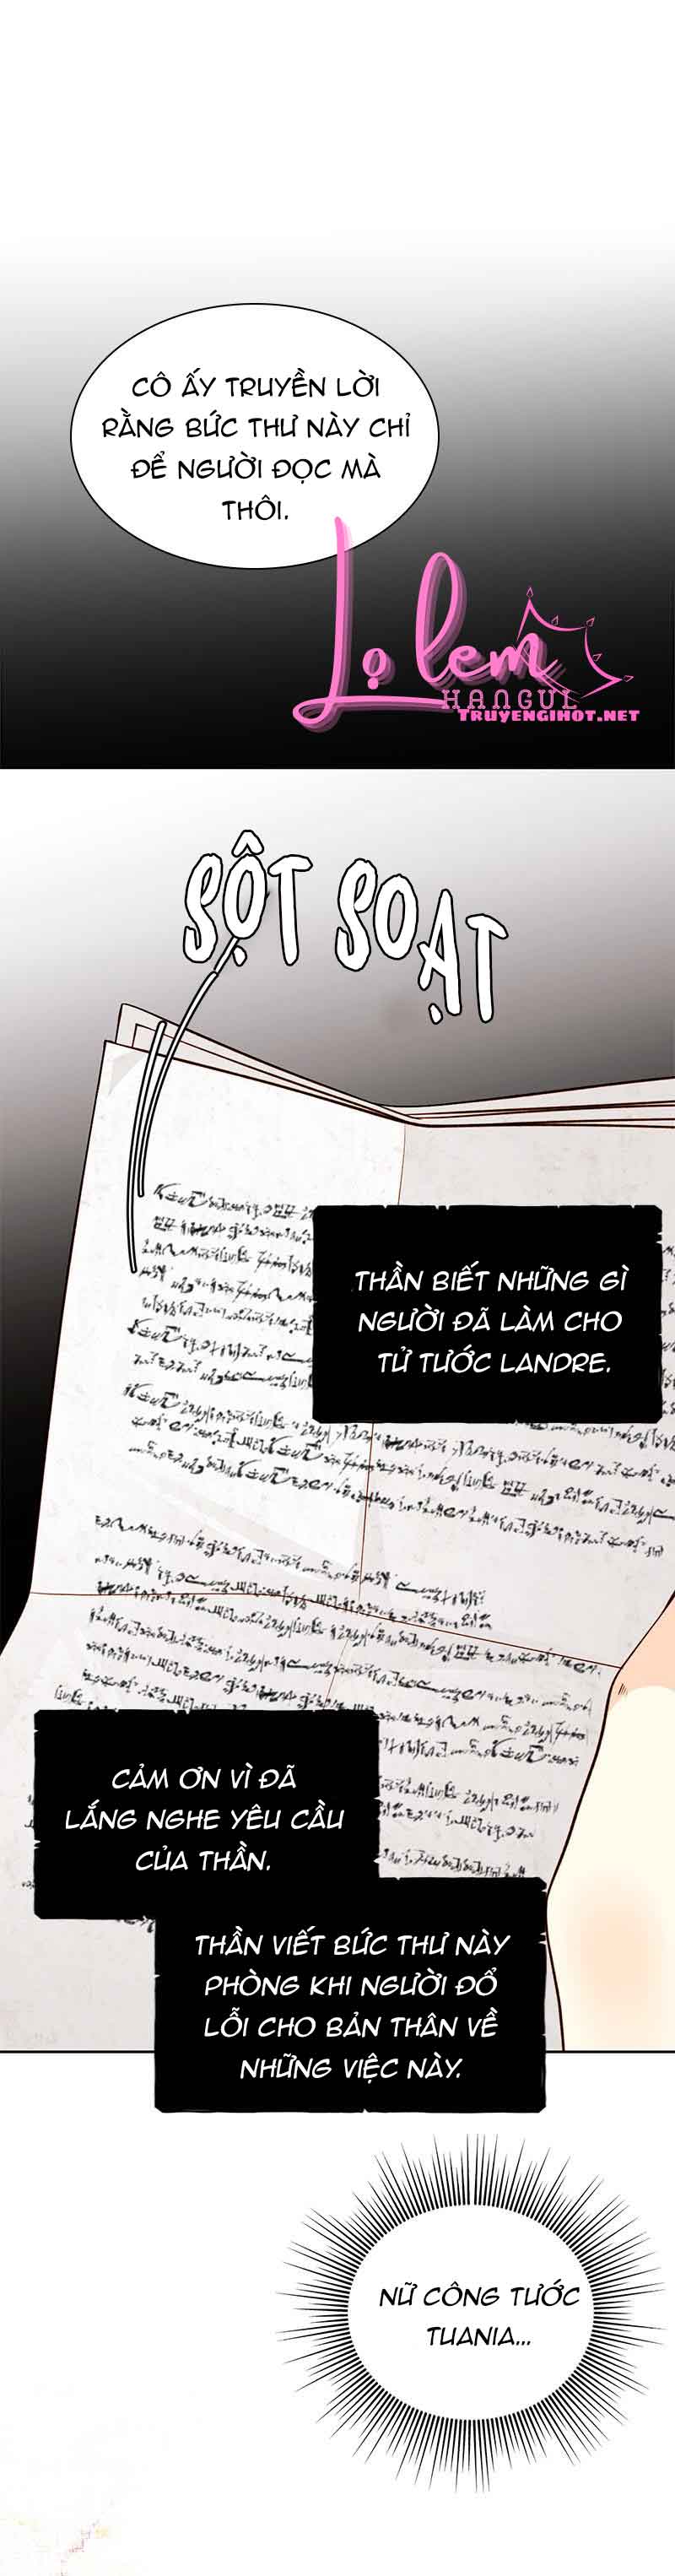 CÔ ẤY TRUYỀN LỜI
RẰNG BỨC THƯ NÀY CHỈ
ĐỂ NGƯỜI ĐỌC MÀ
THÔI.
Lọ lem
HANGUL
TRUYENGIHOT.NET
SỘT SOẠT
THẦN BIẾT NHỮNG GÌ
NGƯỜI ĐÃ LÀM CHO
TỬ TƯỚC LANDRE.
CẢM ƠN VÌ ĐÃ
LẮNG NGHE YÊU CẦU
CỦA THẦN.
THẦN VIẾT BỨC THƯ NÀY
PHÒNG KHI NGƯỜI ĐỔ
LỖI CHO BẢN THÂN VỀ
NHỮNG VIỆC NÀY.
NỮ CÔNG TƯỚC
TUANIA...